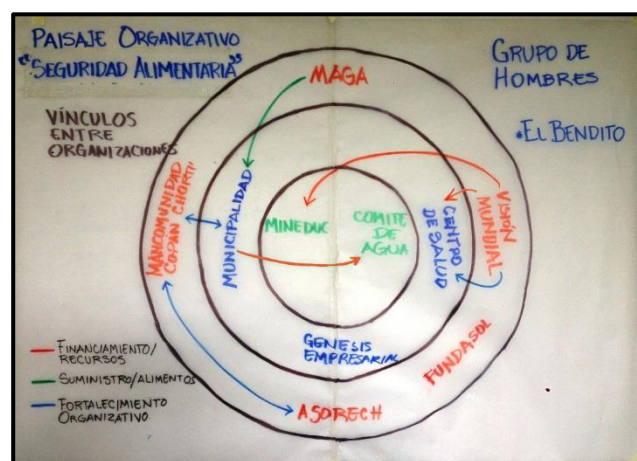 PAISAJE ORGANIZATIVO
"SEGURIDAD ALIMENTARIA"
GRUPO DE
HOMBRES
•EL BENDITO
VÍNCULOS
ENTRE
ORGANIZACIONES
MAGA
MANCOMUNIDAD
COPAN CHORTI'
MUNICIPALIDAD
MINEDUC
COMITE DE
AGUA
CENTRO
DE SALUD
VISIÓN
MUNDIAL
GENESIS
EMPRESARIAL
FUNDASOL
ASORECH
FINANCIAMIENTO/
RECURSOS
SUMINISTRO/ALIMENTOS
FORTALECIMIENTO
ORGANIZATIVO